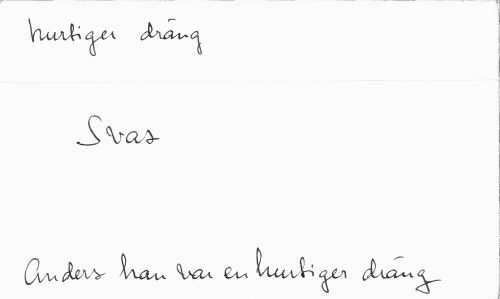 hurtiger dräng
Svas
Anders han var en hurtiger dräng